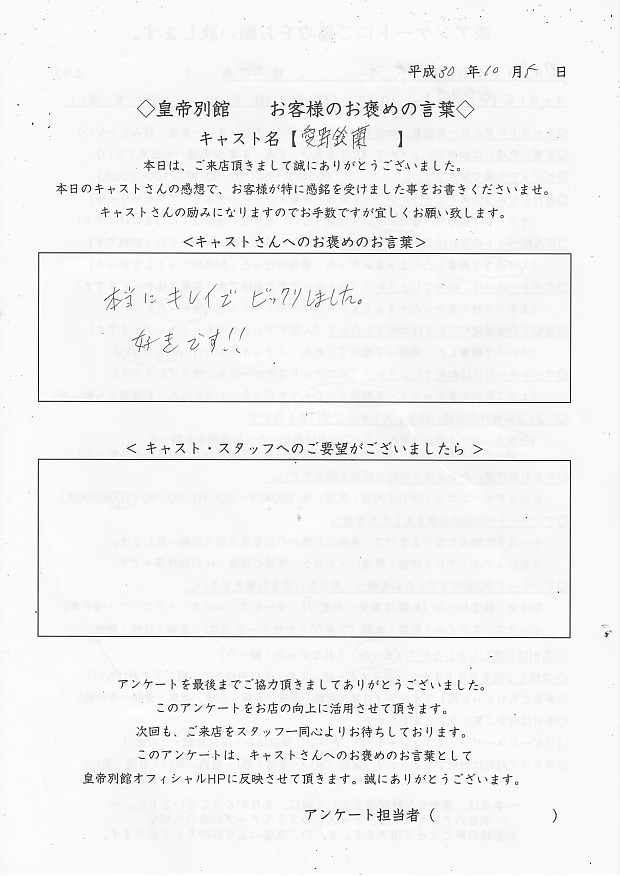 平成30年10月5日
◇皇帝別館　お客様のお褒めの言葉◇
キャスト名【愛野鈴蘭　】
本日は、ご来店頂きまして誠にありがとうございました。
本日のキャストさんの感想で、お客様が特に感銘を受けました事をお書きくださいませ。
キャストさんの励みになりますのでお手数ですが宜しくお願い致します。
＜キャストさんへのお褒めのお言葉＞
本当にキレイで ビックリしました。
好きです!!
＜ キャスト・スタッフへのご要望がございましたら ＞
アンケートを最後までご協力頂きましてありがとうございました。
このアンケートをお店の向上に活用させて頂きます。
次回も、ご来店をスタッフ一同心よりお待ちしております。
このアンケートは、キャストさんへのお褒めのお言葉として
皇帝別館オフィシャルHPに反映させて頂きます。誠にありがとうございます。
アンケート担当者（　　　　　　）